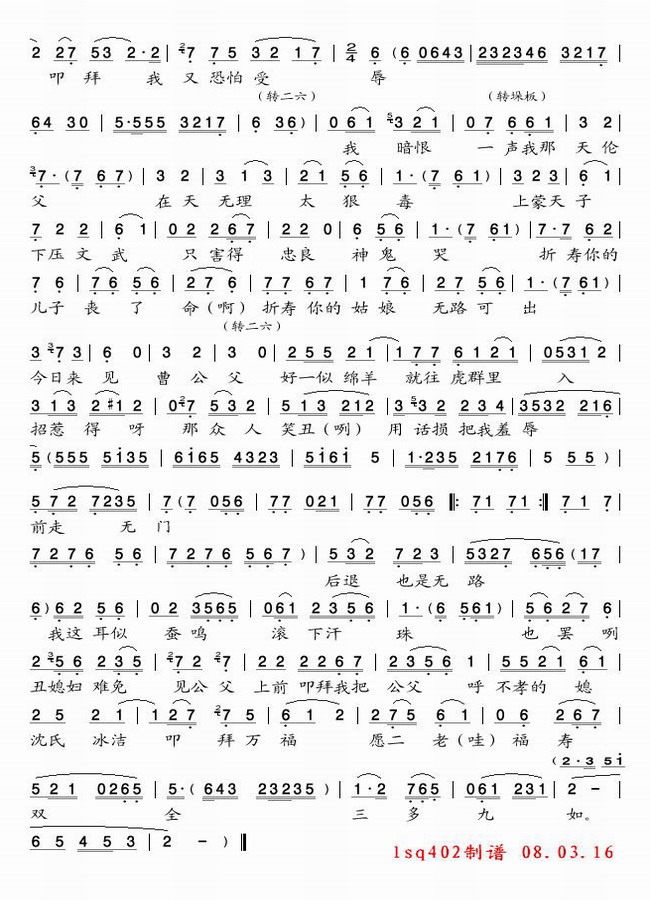 2 27 53 2·2 | 27 75 32 17 | 2/4 6 (6 0643 | 232346 3217 |
叩拜 我 又 恐怕 受 辱
(转二六) (转垛板)
64 30 | 5·555 3217 | 6 36) | 0 61 | 5 321 | 07 661 | 32 |
我 暗恨 一声我那 天伦
3 7·(7 67) | 32 | 313 | 221 56 | 1·(7 61) | 23 61 |
父 在天 无理 太 狠 毒 上蒙天子
722 | 61 | 022 267 | 220 | 161 276 | 1·(7 61) | 7·7 62 |
下压文武 只害得 忠良 神鬼 哭 折寿你的
76 | 76 56 | 276 | 77 67 | 1 76 | 27 56 | 1·(7 61) |
儿子 丧了 命(啊) 折寿你的 姑娘 无路可 出
(转二六)
3 3 73 | 6 0 | 32 | 30 | 255 21 | 177 6121 | 0531 2 |
今日来 见 曹公 父 好一似 绵羊 就往 虎群里 入
313 2#12 | 0 2 7 532 | 513 212 | 3 5 32 234 | 3532 216 |
招惹 得呀 那众人 笑丑(咧) 用话损 把我羞 辱
5 (555 5i35 | 6i65 4323 | 5i6i 5 | 1·235 2176 | 5 55) |
572 7235 | 7(7 056 | 77 021 | 77 056 ‖: 71 71 :‖ 71 7 |
前走 无 门
7276 56 | 7276 567) | 532 723 | 5327 656(17 |
后退 也是无 路
6)62 56 | 02 3565 | 061 2356 | 1·(6 561) | 5627 6 |
我这 耳似 蚕鸣 滚下汗 珠 也罢 咧
2 3 56 235 | 2 72 27 | 22 2267 | 2356 1 | 5521 61 |
丑媳妇 难免 见公父 上前 叩拜我把 公父 呼 不孝的 媳
25 21 | 127 2 75 | 61 2 | 275 61 | 06 267 |
沈氏 冰洁 叩 拜万 福 愿二 老(哇) 福 寿
(2·3 5i
521 0265 | 5·(643 23235) | 1·2 765 | 061 231 | 2 – |
双 全 三多 九 如。
65 453 | 2 – ) ‖
lsq402制谱 08.03.16